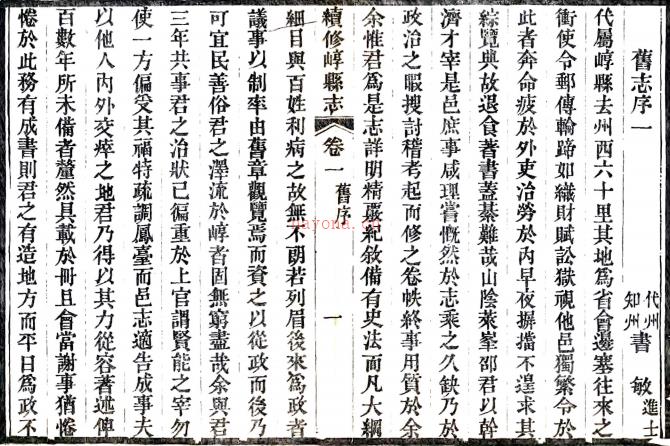 舊志序一
代州知州書敏進士
代屬崞縣去州西六十里其地爲省會邊塞往來之
衝使令郵傳輪蹄如織財賦訟獄視他邑獨繁令於
此者奔命疲於外吏治勞於內早夜摒擋不遑求其
綜覽典故退食著書蓋綦難哉山陰萊峯邵君以幹
濟才宰是邑庶事咸理嘗慨然於志乘之久缺乃於
政治之暇搜討稽考起而修之卷帙終事用質於余
余惟君爲是志詳明精嚴紀敘備有史法而凡大綱
續修崞縣志
卷一 舊序 一
細目與百姓利病之故無不朗若列眉後來爲政者
議事以制率由舊章觀覽焉而資之以從政而後乃
可宜民善俗君之澤流於崞者固無窮盡哉余與君
三年共事君之治狀已徧重於上官謂賢能之宰勿
使一方偏受其福特疏調鳳臺而邑志適告成事夫
以他人內外交瘁之地君乃得以其力從容著述俾
百數年所未備者釐然具載於冊且會當謝事猶惓
惓於此務有成書則君之有造地方而平日爲政不
nayona.cn